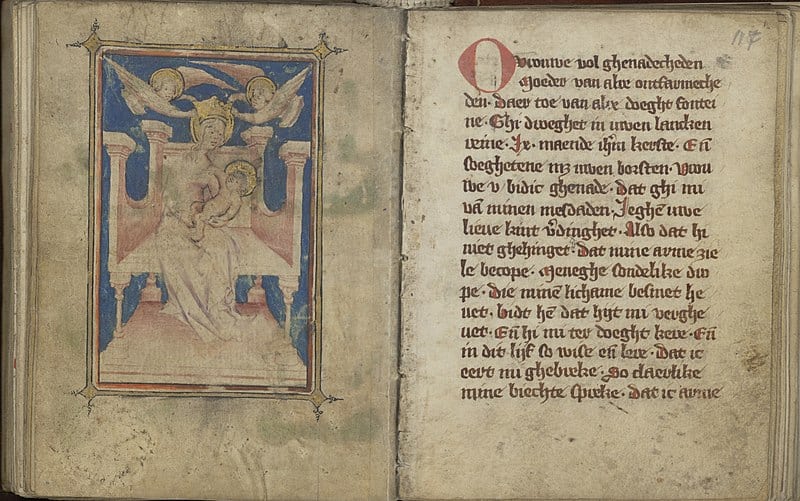 117
O vrouwe vol ghenadecheden
Moeder van alre ontfarmeche
den· daer toe van alre doeght fontei
ne· Ghi droeghet in uwen lancken
reine· Ix· maende ihm kerste· Eñ
soeghetene mz uwen borsten· Vrou
we v bidic ghenade· dat ghi mi
vā minen mesdaden· Jeghē uwe
lieue kint v̄dinghet· Also dat hi
niet ghehinget· dat mine arme zie
le becope· Meneghe sondelike dro
pe· die minē lichame besmet he
uet· bidt hē dat hijt mi verghe
uet· Eñ hi mi ter doeght kere· Eñ
in dit lijf so wise eñ lere· dat ic
eert mi ghebreke· So claerlike
mine biechte spreke· dat ic arme